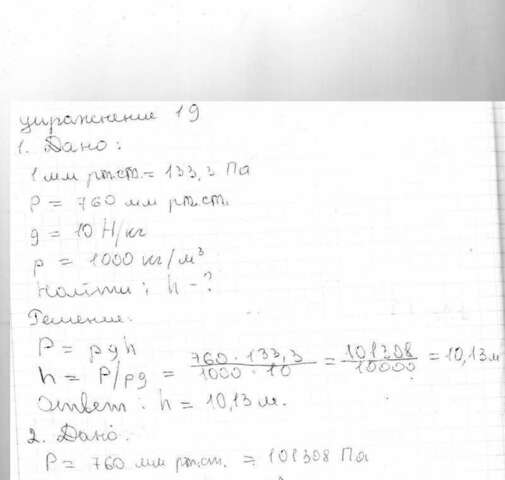 упражнение 19
1. Дано:
1 мм рт.ст. = 133,3 Па
P = 760 мм рт.ст.
g = 10 Н/кг
ρ = 1000 кг/м³
Найти: h - ?
Решение:
P = ρgh
h = P/ρg = 760 · 133,3 / 1000 · 10 = 101308 / 10000 = 10,13 м
Ответ: h = 10,13 м.
2. Дано:
P = 760 мм рт.ст. = 101308 Па